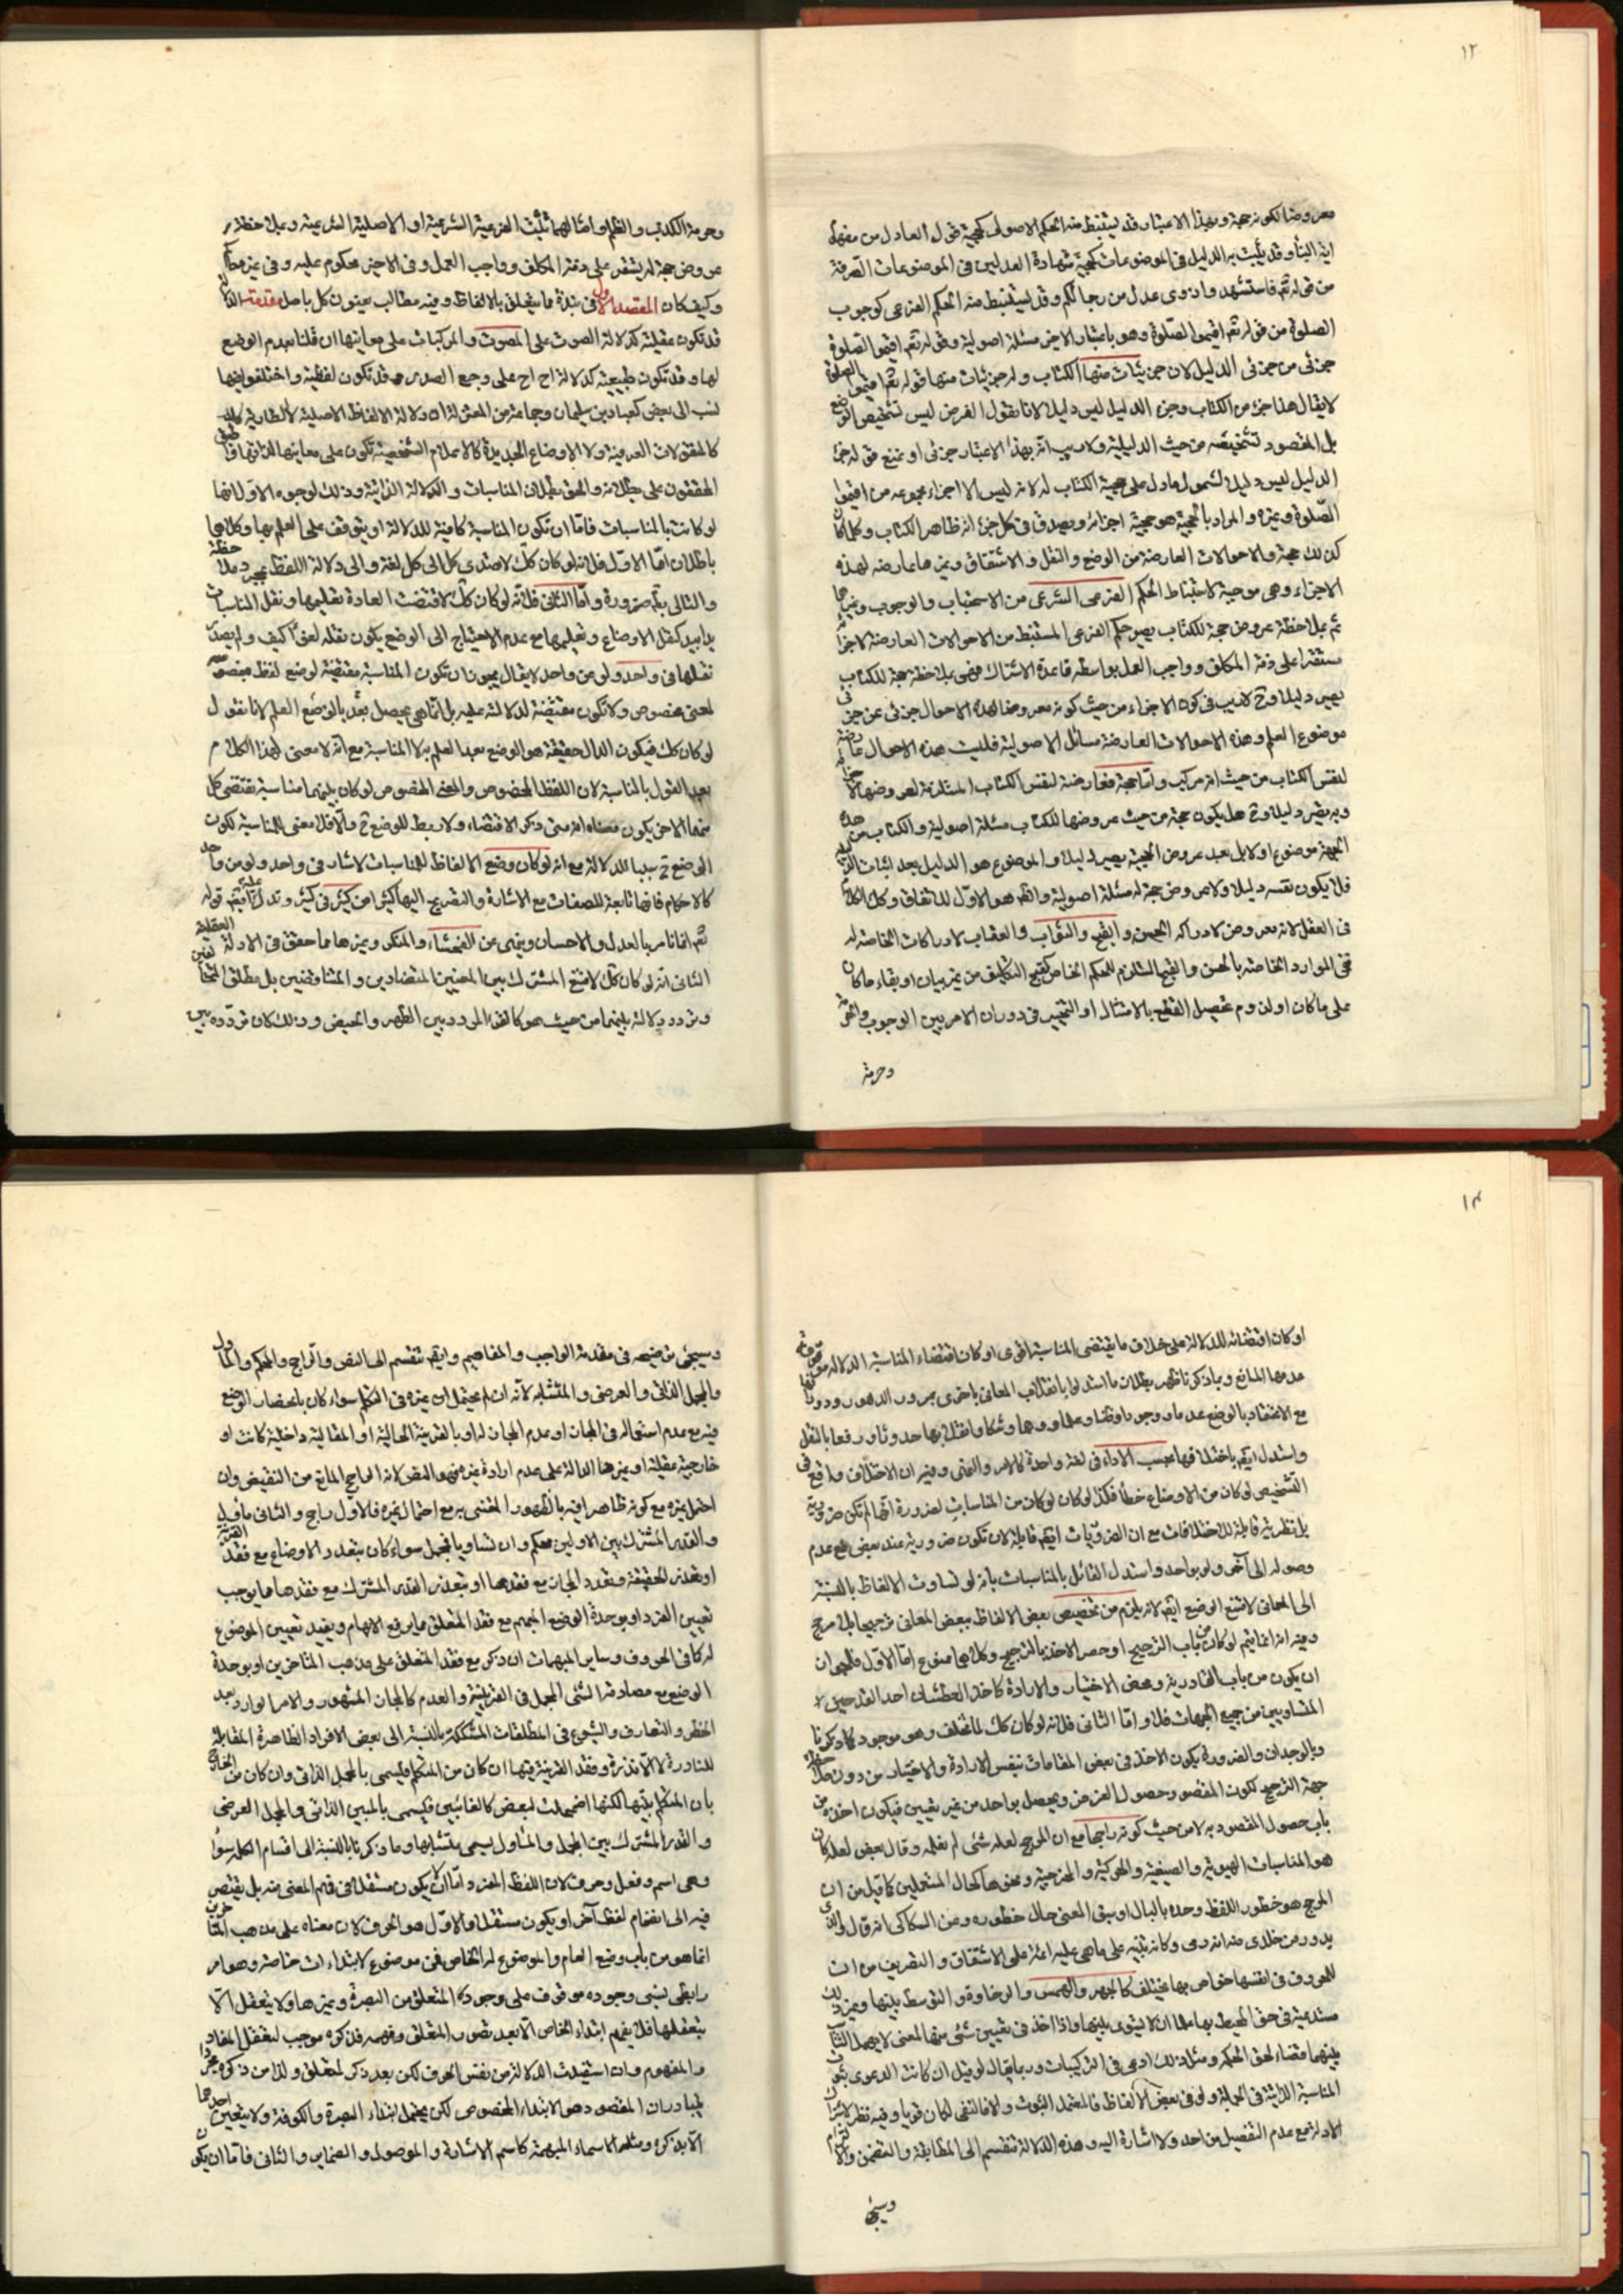 ١٢
معروضا لكونه حجة وبهذا الاعتبار قد يستنبط منه الحكم الاصولى كحجية قول العادل من مفهوم
اية النبأ وقد يثبت به الدليل فى الموضوعات كحجية شهادة العدلين فى الموضوعات الصرفة
من قوله تعم فاستشهدوا ذوى عدل من رجالكم وقد يستنبط منه الحكم الفرعى كوجوب
الصلوة من قوله تعم اقيموا الصلوة وهو باعتبار الاخير مسئلة اصولية وقوله تعم اقيموا الصلوة
جزئى من جزئى الدليل لان جزئيات منها الكتاب وله جزئيات منها قوله تعم اقيموا الصلوة
لا يقال هذا جزء من الكتاب وجزء الدليل ليس دليلا لانا نقول الغرض ليس تشخيص الوضع
بل المقصود تشخيصه من حيث الدليلية ولا ريب انه بهذا الاعتبار جزئى او نمنع قوله جزء
الدليل ليس دليلا لشمول ما دل على حجية الكتاب له لانه ليس الا اجزاء مجموعه من اقيموا
الصلوة وغيره والمراد بالحجية هو حجية اجزائه ويصدق فى كل جزء انه ظاهر الكتاب وكلما كان
كذلك حجة والاحوالات العارضة من الوضع والنقل والاشتقاق وغيرها عارضه لهذه
الاجزاء وهى موجبة لاستنباط الحكم الفرعى الشرعى من الاستحباب والوجوب وغيرهما
ثم بملاحظة عروض حجة للكتاب يصير حكم الفرعى المستنبط من الاحوالات العارضة لاجزائه
مستقرا على ذمة المكلف وواجب العمل بواسطه قاعدة الاشتراك فهى بملاحظة حجة للكتاب
يصير دليلا وح لا ريب فى كون الاجزاء من حيث كونه معروضا لهذه الاحوال جزئى من جزئى
موضوع العلم وهذه الاحوالات العارضة مسائل الاصولية فليست هذه الاحوال عارضة
لنفس الكتاب من حيث انه مركب واما حجة فعارضة لنفس الكتاب المستلزمة لعروضها لاجزائه
وبه يصير دليلا وح هل يكون حجة من حيث عروضها للكتاب مسئلة اصولية والكتاب من هذه
الجهة موضوع اولا بل بعد عروض الحجية يصير دليلا والموضوع هو الدليل بعد اثبات الدليلية
فلا يكون نفسه دليلا ولا عروض حجة له مسئلة اصولية والظ هو الاول للاتفاق وكذا الكلام
فى العقل لانه معروض لادراكه الحسن والقبح والثواب والعقاب لادراكات الخاصة له
فى الموارد الخاصة بالحسن والقبح المستلزم للحكم الخاص كقبح التكليف من غير بيان او بقاء ما كان
على ما كان اولزوم تحصيل القطع بالامتثال او التخيير فى دوران الامر بين الوجوب والحرمة
وحرمة
وحرمة الكذب والظلم وامثالهما تثبت الفرعية الشرعية او الاصلية الشرعية وبملاحظة
عروض حجة له يستقر على ذمة المكلف وواجب العمل وفى الاخير محكوم عليه وفى غيره
وكيف كان المقصد الاول فى نبذة ما يتعلق بالالفاظ وفيه مطالب يعنون كل باصل مقدمة الدلالة
قد تكون عقلية كدلالة الصوت على المصوت والمركبات على معانيها ان قلنا بعدم الوضع
لها وقد تكون طبيعية كدلالة اح اح على وجع الصدر وقد تكون لفظية واختلفوا فيها
نسب الى بعض كعباد بن سليمان وجماعة من المعتزلة ان دلالة الالفاظ الاصلية لا الطارية
كالمنقولات العرفية ولا الاوضاع الجديدة كالاعلام الشخصية تكون على معانيها لذاتها
المحققون على بطلانه والحق بطلان المناسبات والدلالة الذاتية وذلك لوجوه الاول انها
لو كانت بالمناسبات فاما ان تكون المناسبة كافية للدلالة او يتوقف على العلم بها وكلاهما
باطلان اما الاول فلانه لو كان كك لاهتدى كل الى كل لغة والى دلالة اللفظ بمجرد ملاحظة
والتالى بطم ضرورة واما الثانى فلانه لو كان كك لاقتضت العادة تعليمها ونقل المناسبات
يدا بيد كنقل الاوضاع وتعليمها مع عدم الاحتياج الى الوضع يكون نقله لغوا كيف ولم يصدر
نقلها فى واحد ولو من واحد لا يقال يجوز ان تكون المناسبة مقتضية لوضع لفظ مخصوص
لمعنى مخصوص ولا تكون مقتضية لدلالته عليه بل انما هى يحصل بعد بالوضع العلم لانا نقول
لو كان كك فيكون الدال حقيقة هو الوضع بعد العلم به لا المناسبة مع انه لا معنى لهذا الكلام
بعد القول بالمناسبة لان اللفظ المخصوص والمعنى المخصوص لو كان بينهما مناسبة يقتضى كل
منهما الاخر يكون معناه انه متى ذكر الاقتضاء ولا ربط للوضع ح والا فلا معنى للمناسبة لكون
الوضع ح سببا للدلالة مع انه لو كان وضع الالفاظ للمناسبات لاشار فى واحد ولو من واحد
كالاحكام فانها تابعة للصفات مع الاشارة والتصريح اليها كثيرا من كثير فى كثير وتدل عليه ايضا قوله
تعم انما نامر بالعدل والاحسان وينهى عن الفحشاء والمنكر وغيرها مما حقق فى الادلة العقلية
الثانى انه لو كان كك لامتنع المشترك بين المعنيين المتضادين والمتناقضين بل مطلق المتخالفين
وتردد دلالته بينهما من حيث هو كالقرء المردد بين الطهر والحيض وذلك كان تردده بين
١٣
او كان اقتضائه للدلالة على خلاف ما يقتضى المناسبة اقوى او كان اقتضاء المناسبة الدلالة موقوفة
عدمها المانع وبما ذكرنا ظهر بطلان ما استدلوا بانقلاب المعانى باخرى بمرور الدهور ودورانها
مع الاعتقاد بالوضع عدما ووجودا وظنا وعلما ووهما وشكا وانتقل بها حدوثا ورفعا بالنقل
واستدل ايضا باختلافها بحسب الاداء فى لغة واحدة كالامر والنهى وفيه ان الاختلاف واقع فى
التشخيص لو كان من الاوضاع خطأ فكذا لو كان من المناسبات لضرورة انها لم تكن ضرورية
بل نظرية قابلة للاختلافات مع ان الضروريات ايضا قابلة لان تكون ضرورية عند بعض مع عدم
وصوله الى آخر ولو بواحد واستدل القائل بالمناسبات بانه لو تساوت الالفاظ بالنسبة
الى المعانى لامتنع الوضع ايضا لانه يلزم من تخصيص بعض الالفاظ ببعض المعانى ترجيحا بلا مرجح
وفيه انه انما يتم لو كان من باب الترجيح او حصر الاخذ بالترجيح وكلاهما ممنوع اما الاول فلجواز
ان يكون من باب القادرية ومحض الاختيار والارادة كاخذ العطشان احد القدحين
المتساويين من جميع الجهات فلا واما الثانى فلانه لو كان كك لما تخلف وهو موجود كما ذكرنا
وبالوجدان والضرورة يكون الاخذ فى بعض المقامات بنفس الارادة والاختيار من دون ملاحظة
جهة الترجيح لكون المقصود حصول الغرض ويحصل بواحد من غير تعيين فيكون اخذه من
باب حصول المقصود به لا من حيث كونه راجحا مع ان المرجح لعله شئى لم نعلمه وقال بعض لعله كان
هو المناسبات الهيوئية والصيغية والحركية والمخرجية ونحوها كحال المستعملين كما قيل من ان
المرجح هو خطور اللفظ وحده بالبال او سبق المعنى حال خطوره وعن السكاكى انه قال والذى
يدور من خلدى منه انه رمى وكانه تنبيه على ما هى عليه ائمة على الاشتقاق والتصريف من ان
للحروف فى انفسها خواص بها يختلف كالجهر والهمس والرخاوة والتوسط بينها وغير ذلك
مستدعية فى حق المحيط بها علما ان لا يتسوى بينها واذا اخذ فى تعيين شئى منها لمعنى لا يهمل التناسب
بينهما قضاء لحق الحكمة ومثل ذلك ادعى فى التركيبات وربما يقال لو قيل ان كانت الدعوى ثبوت
المناسبة الذاتية فى الجملة ولو فى بعض الالفاظ فالمعتمد الثبوت والا فالنفى لكان قويا وفيه نظر
الادلة مع عدم التفصيل من احد ولا اشارة اليه وهذه الدلالة تنقسم الى المطابقة والتضمن والالتزام
وسيجئ
وسيجئ توضيحه فى مقدمة الواجب والمفاهيم وايضا تنقسم الى النص والراجح والمحكم والمأول
والمجمل الذاتى والعرضى والمتشابه لانه ان لم يحتمل غيره فى التكلم سواء كان بانحصار الوضع
فيه مع عدم استعماله فى المجاز او عدم المجاز له او بالقرينة الحالية او المقالية داخلية كانت او
خارجية عقلية او غيرها الدالة على عدم ارادة غيره فهو والنص لانه الحاجز المانع من النقيض وان
احتمل غيره مع كونه ظاهرا فيه بالظهور المعتنى به مع احتمال غيره فالاول راجح والثانى مأول
والقدر المشترك بين الاولين محكم وان تساويا فمجمل سواء كان بتعدد الاوضاع مع فقد القرينة
او بتعذر الحقيقة وتعدد المجاز مع فقدها او بتعذر القدر المشترك مع فقدها مما يوجب
تعيين الفرد او بوحدة الوضع المبهم مع فقد المتعلق مما يرفع الابهام ويفيد تعيين الموضوع
له كما فى الحروف وساير المبهمات ان ذكر مع فقد المتعلق على مذهب المتاخرين او بوحدة
الوضع مع مصادفة الشئى المجمل فى القرينية والعدم كالمجاز المشهور والامر الوارد بعد
الحظر والتعارف والشيوع فى المطلقات المشككة بالنسبة الى بعض الافراد الظاهرة المقابلة
للنادرة لا الاندرة وفقد القرينة فيها ان كان من المتكلم فليسمى بالمجمل الذاتى وان كان من الخارج
بان المتكلم بينها لكنها اضمحلت لبعض كالغائبين فيسمى بالمبين الذاتى والمجمل العرضى
والقدر المشترك بين المجمل والمأول يسمى بمتشابها وما ذكرنا بالنسبة الى اقسام الكلمة سواء
وهى اسم وفعل وحرف لان اللفظ المفرد اما ان لا يكون مستقلا فى فهم المعنى منه بل يفتقر
فيه الى انضمام لفظ آخر او يكون مستقلا والاول هو الحرف لان معناه على مذهب المتاخرين
انما هو من باب وضع العام والموضوع له الخاص فمن موضوع لابتداءات خاصة وهو امر
رابطى نسبى وجوده موقوف على وجود المتعلق من البصرة وغيرها ولا يتعقل الا
بتعقلها فلا يفهم ابتداء الخاص الا بعد تصور المتعلق وفهمه فذكره موجب لتعقل المفاد
والمفهوم وان استفيدت الدلالة من نفس الحرف لكن بعد ذكر المتعلق ولذا من ذكره مجردا
يتبادر ان المقصود هو الابتداء المخصوص لكن يحتمل ابتداء البصرة والكوفة ولا يتعين احدهما
الا بذكره ومثله الاسماء المبهمة كاسم الاشارة والموصول والضماير والثانى فاما ان يكون